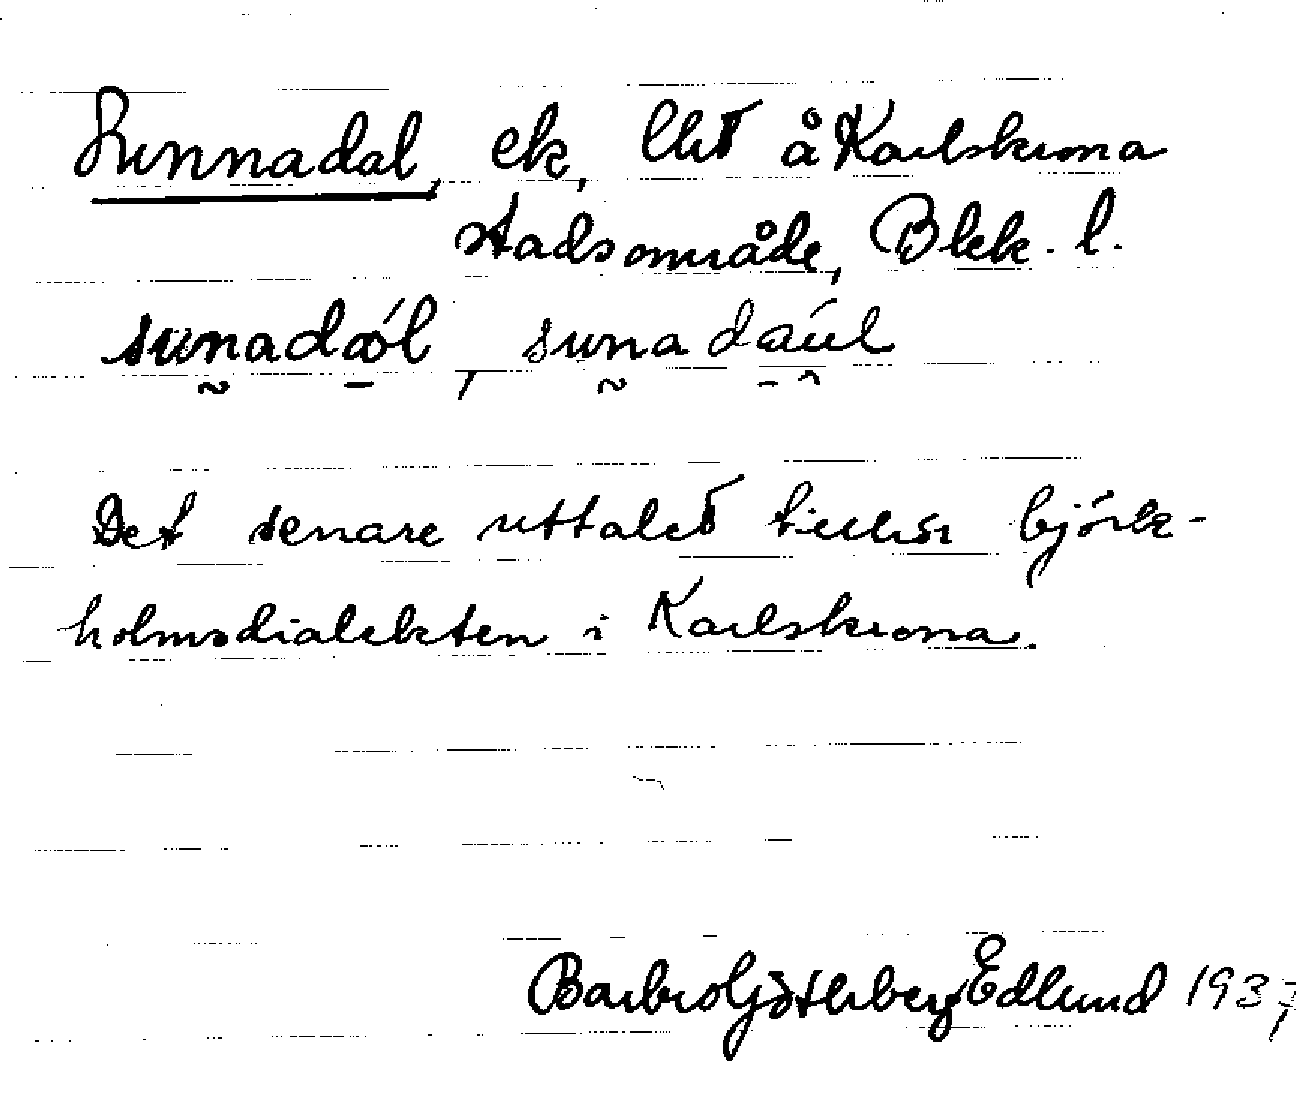 Sunnadal, ek, Uhs å Karlskrona
stadsområde, Blek. l.
sunadál, sunadaúl
Det senare uttalet tillhör björk-
holmsdialekten i Karlskrona.
Barbro Götherberg Edlund 1937